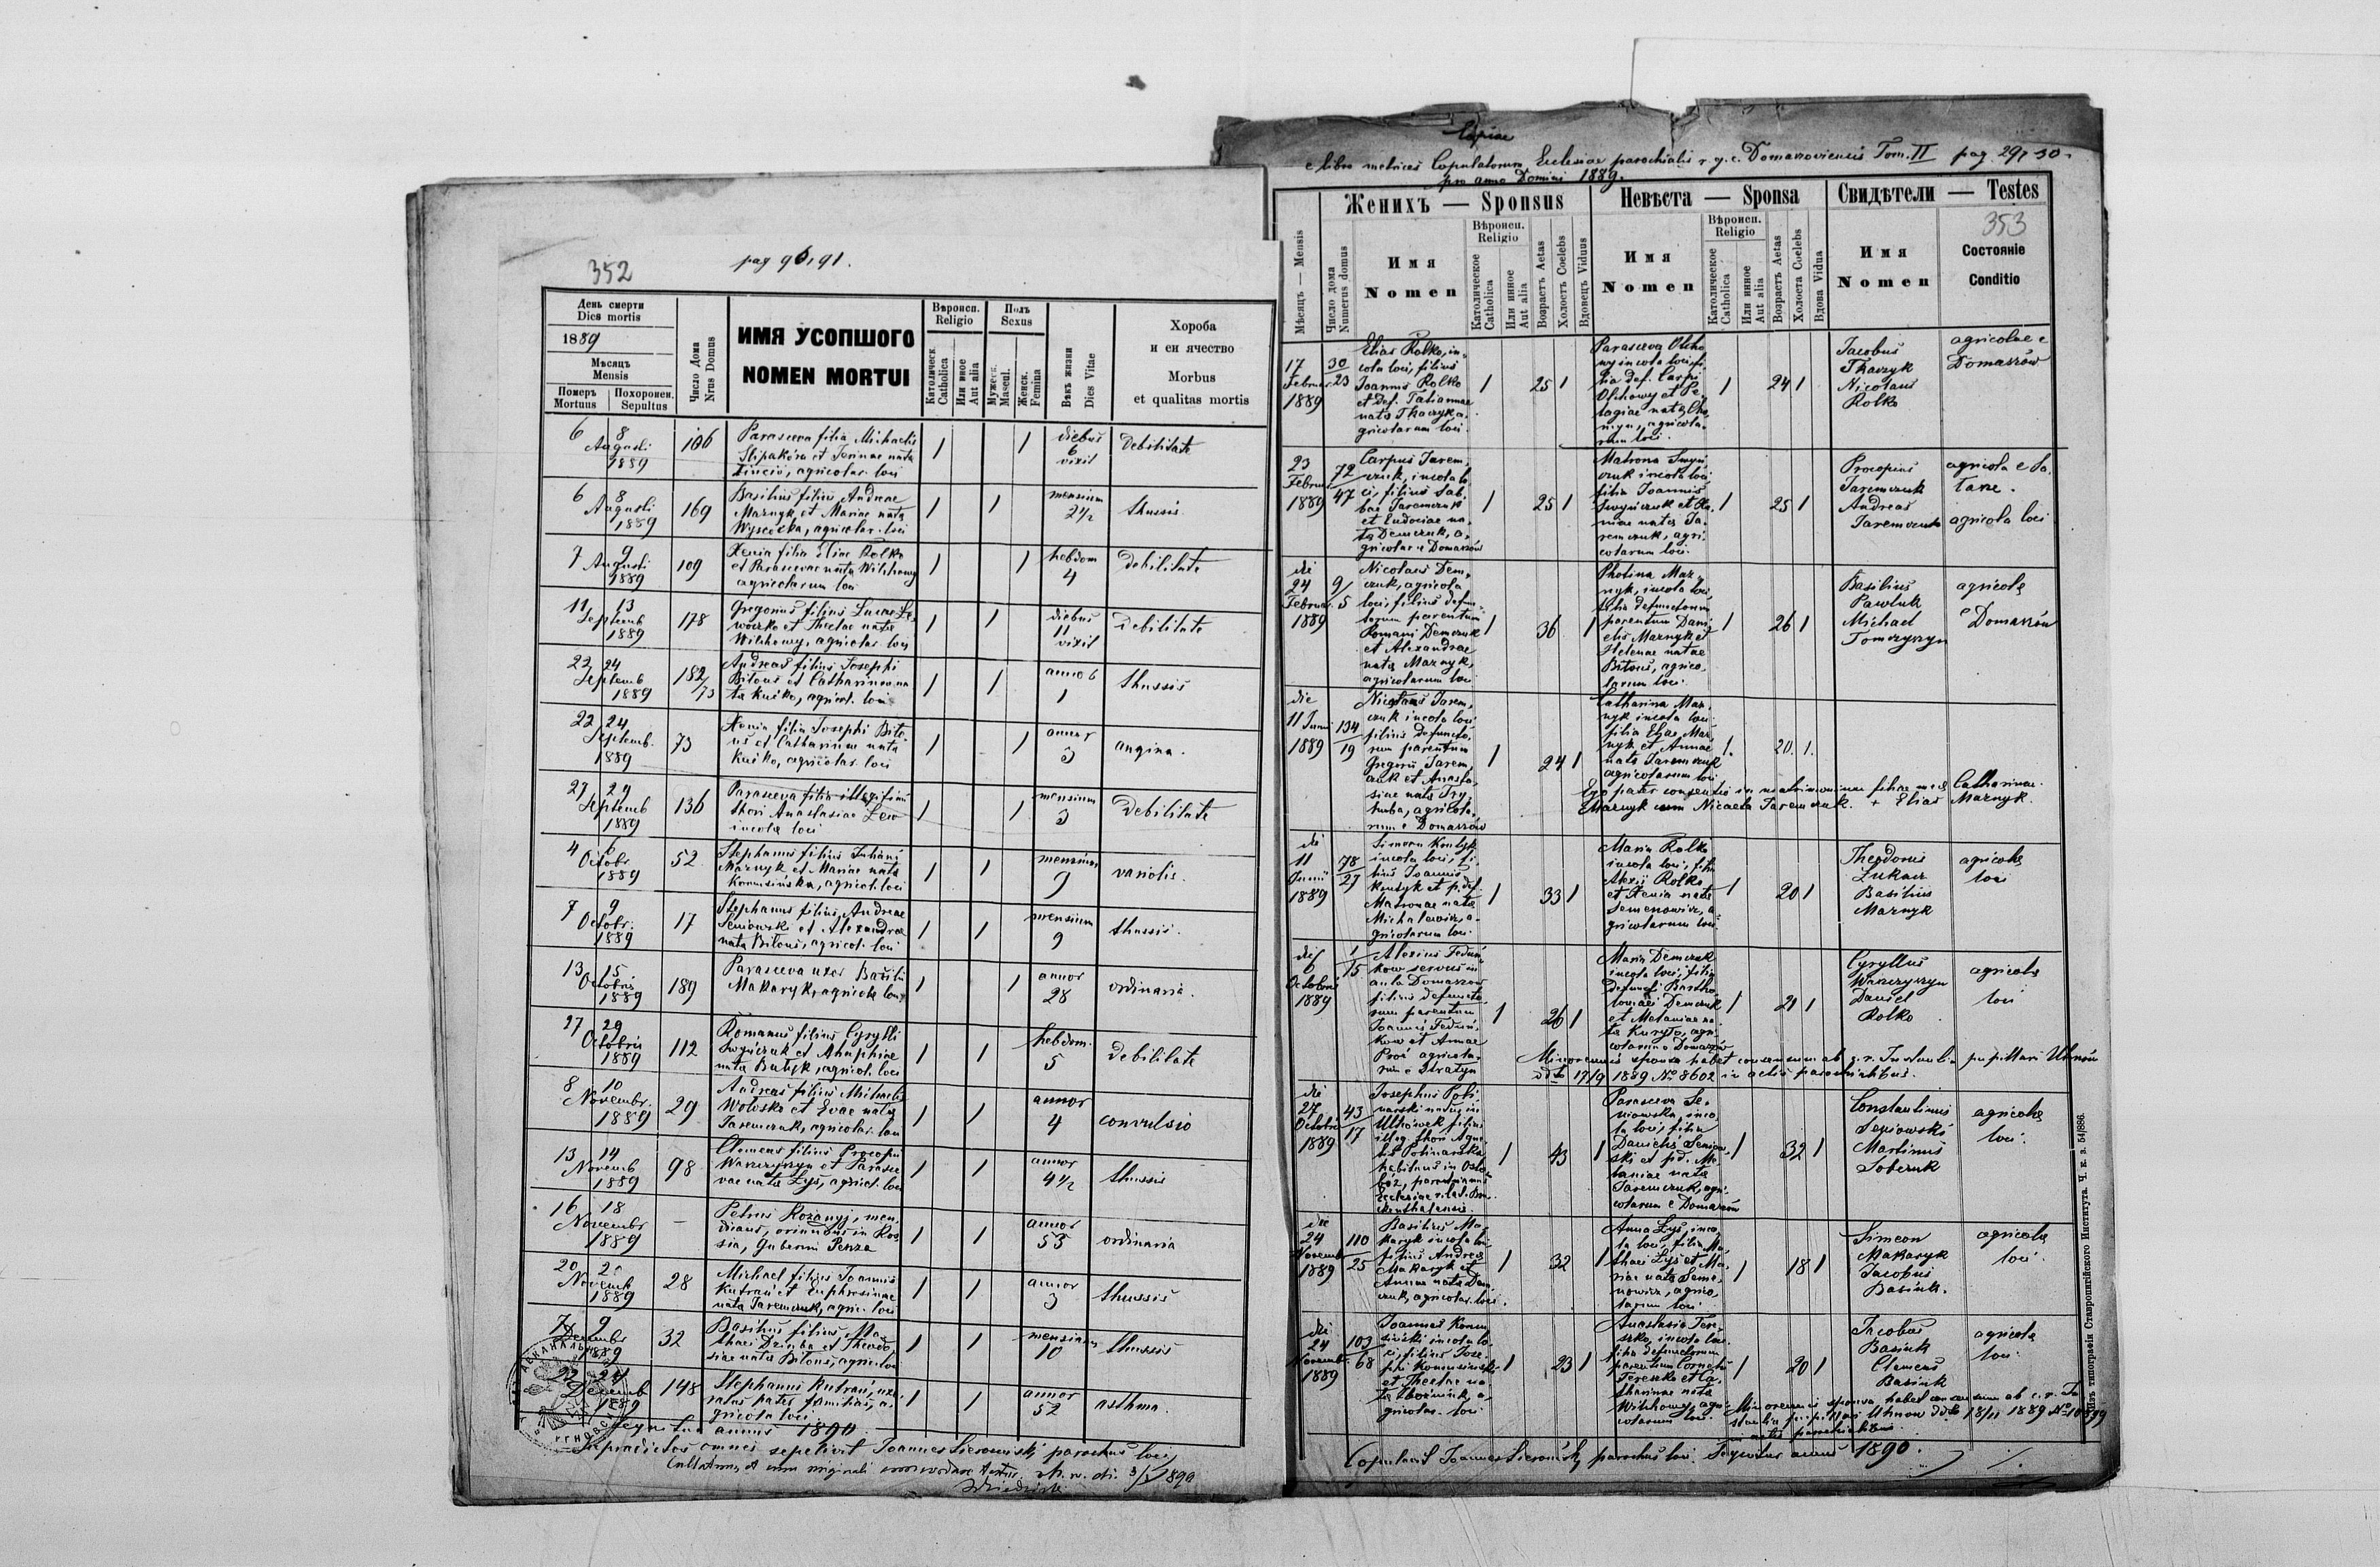 352
pag 90, 91.
День смерти
Dies mortis
1889
Мѣсяцъ
Mensis
Померъ
Mortuus
Похоронен.
Sepultus
Число Дома
Nrus Domus
ИМЯ УСОПШОГО
NOMEN MORTUI
Вѣроисп.
Religio
Католическ.
Catholica
Или иное
Aut alia
Полъ
Sexus
Мужеск.
Mascul.
Женск.
Femina
Вѣкъ жизни
Dies Vitae
Хороба
и еи ячество
Morbus
et qualitas mortis
6 8 Augusti 1889 106
Parasceva filia Michaelis
et Irinae nata
agricolar. loci
1 1 diebus 6 vixit Debilitate
6 8 Augusti 1889 169
Basilius filius Andreae
Maznyk et Mariae nata
Wysocka, agricolar. loci
1 1 mensium 2 1/2 thussis
7 9 Augusti 1889 109
Xenia filia Eliae Rolko
et Parascevae nata Wilchowy
agricolarum loci
1 1 hebdom 4 debilitate
11 13 Septemb 1889 178
Gregorius filius Lucae Le
woczko et Theclae nata
Wilchowy, agricolar. loci
1 1 diebus 11 vixit Debilitate
22 24 Septemb 1889 182/73
Andreas filius Josephi
Bitous et Catharinae na
ta Kuśko, agricol. loci
1 1 anno 1 thussis
22 24 Septemb. 1889 73
Xenia filia Josephi Bito
us et Catharinae nata
Kuśko, agricolar. loci
1 1 annor 3 angina.
27 29 Septemb 1889 136
Parasceva filia illegitimi
thori Anastasiae Lew
incolae loci
1 1 mensium 3 Debilitate
4 6 Octobr 1889 52
Stephanus filius Juliani
Maznyk et Mariae nata
agricol. loci
1 1 mensium 9 variolis.
7 9 Octobr. 1889 17
Stephanus filius Andreae
Seniowski et Alexandrae
nata Bitous, agricol. loci
1 1 mensium 9 thussis.
13 15 Octobris 1889 189
Parasceva uxor Basilii
Makaryk, agricola loci
1 1 annor 28 ordinaria.
27 29 Octobris 1889 112
Romanus filius Cyrylli
Swyńczuk et Ahaphiae
nata agricol. loci
1 1 hebdom. 5 debilitate
8 10 Novembr. 1889 29
Andreas filius Michaelis
Wolosko et Evae nata
Jaremczuk, agricolar. loci
1 1 annor 4 convulsio
13 14 Novemb 1889 98
Clemens filius Procopii
Waszczyszyn et Parasce
vae nata Lys, agricol. loci
1 1 annor 4 1/2 thussis
16 18 Novembr 1889 —
Petrus men
dicans, oriundus in Ros
sia, Gubernii Penza
1 1 annor 55 ordinaria
20 Novemb 1889 28
Michael filius Joannis
Kutrań et Euphrosinae
nata Jaremczuk, agric. loci
1 1 annor 3 thussis
7 9 Decembr 1889 32
Basilius filius Ma
thaei Dziuba et Theodo
siae nata Bitous, agric. loci
1 1 mensium 10 thussis
22 24 Decemb 1889 148
Stephanus Kutrań, uxo
ratus pater familias, a
gricola loci
1 1 annor 52 asthma.
Sequitur annus 1890
Supradictos omnes sepelivit Joannes Sieroiński parochus loci
Copiae
e libro metrices Copulatorum Ecclesiae parochialis r. g. c. Domaszoviensis Tom. II pag. 29, 30
pro anno Domini 1889.
353
Женихъ — Sponsus
Невѣста — Sponsa
Свидѣтели — Testes
Мѣсяцъ — Mensis
Число дома
Numerus domus
Имя
Nomen
Вѣроисп.
Religio
Католическое
Catholica
Или инное
Aut alia
Возрастъ Aetas
Холостъ Coelebs
Вдовецъ Viduus
Имя
Nomen
Вѣроисп.
Religio
Католическое
Catholica
Или инное
Aut alia
Возрастъ Aetas
Холоста Coelebs
Вдова Vidua
Имя
Nomen
Состояніе
Conditio
17 Februar. 1889
30 23
Elias Rolko, in
cola loci, filius
Joannis Rolko
et def. Tatiannae
nata Tkaczyk a
gricolarum loci.
1 25 1
Parasceva
incola loci, fi
lia def. Carpi
et Pe
lagiae nata
agricola
rum loci.
1 24 1
Jacobus
Tkaczyk
Nicolaus
Rolko
agricolae e
Domaszów
23 Februar. 1889
72 47
Carpus Jarem
czuk, incola lo
ci, filius Sab
bae Jaremczuk
et Eudociae na
ta Demczuk, a
gricolar. e Domaszów
1 25 1
Matrona Swyń
czuk incola loci
filia Joannis
Swyńczuk et
nata Ja
remczuk, agri
colarum loci.
1 25 1
Procopius
Jaremczuk
Andreas
Jaremczuk
agricola e
agricola loci
die 24 Februar. 1889
9/5
Nicolaus Dem
czuk, agricola
loci, filius defun
torum parentum
Romani Demczuk
et Alexandrae
nata Maznyk,
agricolarum loci
1 36 1
Photina Maz
nyk, incola loci
filia defunctorum
parentum Dani
elis Maznyk et
Helenae natae
Bitous, agrico
larum loci.
1 26 1
Basilius
Pawluk
Michael
Tomczyszyn
agricolae
e Domaszów
die 11 Junii 1889
134 19
Nicetas Jarem
czuk incola loci
filius defuncto
rum parentum
Gregorii Jarem
czuk et Anasta
siae nata Try
huba, agricola
rum e Domaszów
1 24 1
Catharina Maz
nyk incola loci
filia Eliae Maz
nyk et Annae
nata Jaremczuk
agricolarum loci
1. 20. 1.
Ego pater consentio in matrimonium filiae meae Catharinae
Maznyk cum Niceta Jaremczuk. + Elias Maznyk.
die 11 Junii 1889
78 27
Simeon Kontyk
incola loci, fi
lius Joannis
Kontyk et p. def.
Matronae nata
Michalewicz, a
gricolarum loci.
1 33 1
Maria Rolko
incola loci, filia
Alexii Rolko
et Xenia nata
Semenowicz, a
gricolarum loci.
1 20 1
Theodorus
Lukacz
Basilius
Maznyk
agricolae
loci
die 6 Octobris 1889
1 15
Alexius Fedun
kow servus in
aula Domaszow
filius defuncto
rum parentum
Joannis Fedun
kow et Annae
agricola
rum e Stratyn
1 26 1
Maria Demczuk
incola loci, filia
defuncti Bartho
lomaei Demczuk
et Melaniae na
ta agri
colarum e Domaszów
1 21 1
Cyryllus
Waszczyszyn
Daniel
Rolko
agricolae
loci
Minorennis sponsa habet consensum ab pupillari Uhnów
ddto 17/9 1889 No 8602 in actis parochialibus.
die 27 Octobris 1889
43 17
Josephus Poli
narski natus in
Ulhówek filius
illeg. thori Agne
tis Polinarska
habitans in
1 43 1
Parasceva Se
niowska, inco
la loci, filia
Danielis Seniow
ski et
nata
Jaremczuk, agri
colarum e Domaszów
1 32 1
Constantinus
Seniowski
Martinus
Soteruk
agricolae
loci.
die 24 Novemb. 1889
110 25
Basilius Ma
karyk incola loci
filius Andreae
Makaryk et
Annae nata Dem
czuk, agricolar. loci.
1 32 1
Anna Lys, inco
la loci, filia Ma
thaei Lys et Ma
riae nata Seme
nowicz, agrico
larum loci
1 18 1
Simeon
Makaryk
Jacobus
Basiuk.
agricolae
loci.
die 24 Novemb. 1889
103 68
Joannes
incola lo
ci, filius Jose
phi
et Theclae na
ta a
gricolar. loci
1 23 1
Anastasia Tere
szko, incola loci
filia defunctorum
parentum Cornelii
Tereszko et Ca
tharinae nata
Wilchowy, agri
colarum loci.
1 20 1
Jacobus
Basiuk
Clemens
Basiuk
agricolae
loci
Minorennis sponsa habet consensum ab
pupillari Uhnow ddto 1889
in actis parochialibus.
Copulavit Joannes Sieroiński parochus loci. Sequitur annus 1890.
Изъ типографіи Ставропигійского Института. Ч. к. з. 54/886.